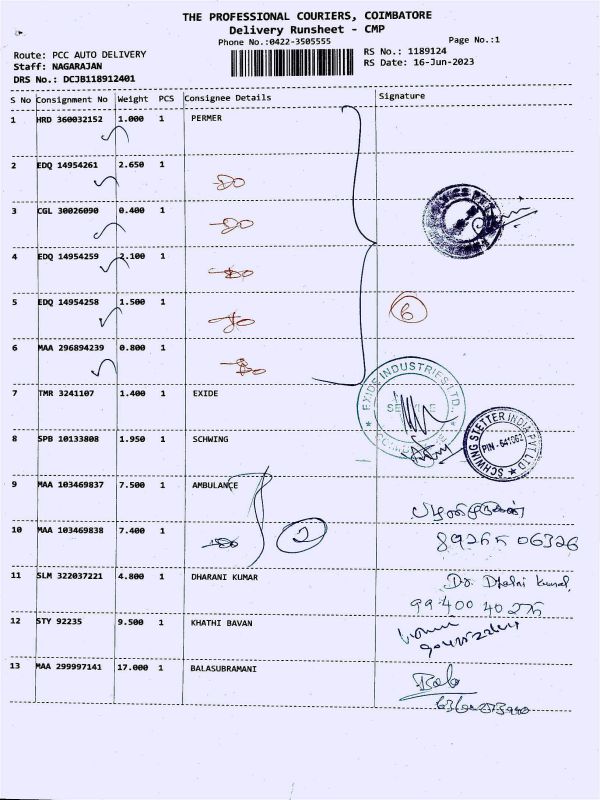 THE PROFESSIONAL COURIERS, COIMBATORE
Delivery Runsheet - CMP
Phone No.:0422-3505555 Page No.:1
Route: PCC AUTO DELIVERY RS No.: 1189124
Staff: NAGARAJAN RS Date: 16-Jun-2023
DRS No.: DCJB118912401
S No Consignment No Weight PCS Consignee Details Signature
1 HRD 360032152 1.000 1 PERMER
2 EDQ 14954261 2.650 1 Do
3 CGL 30026090 0.400 1 Do
4 EDQ 14954259 2.100 1 Do
5 EDQ 14954258 1.500 1 Do
6
6 MAA 296894239 0.800 1 Do
EXIDE INDUSTRIES LTD.
7 TMR 3241107 1.400 1 EXIDE
SCHWING STETTER INDIA PVT LTD
8 SPB 10133808 1.950 1 SCHWING
9 MAA 103469837 7.500 1 AMBULANCE
பழனிமுருகன்
10 MAA 103469838 7.400 1 Do 2
11 SLM 322037221 4.800 1 DHARANI KUMAR
12 STY 92235 9.500 1 KHATHI BAVAN
13 MAA 299997141 17.000 1 BALASUBRAMANI